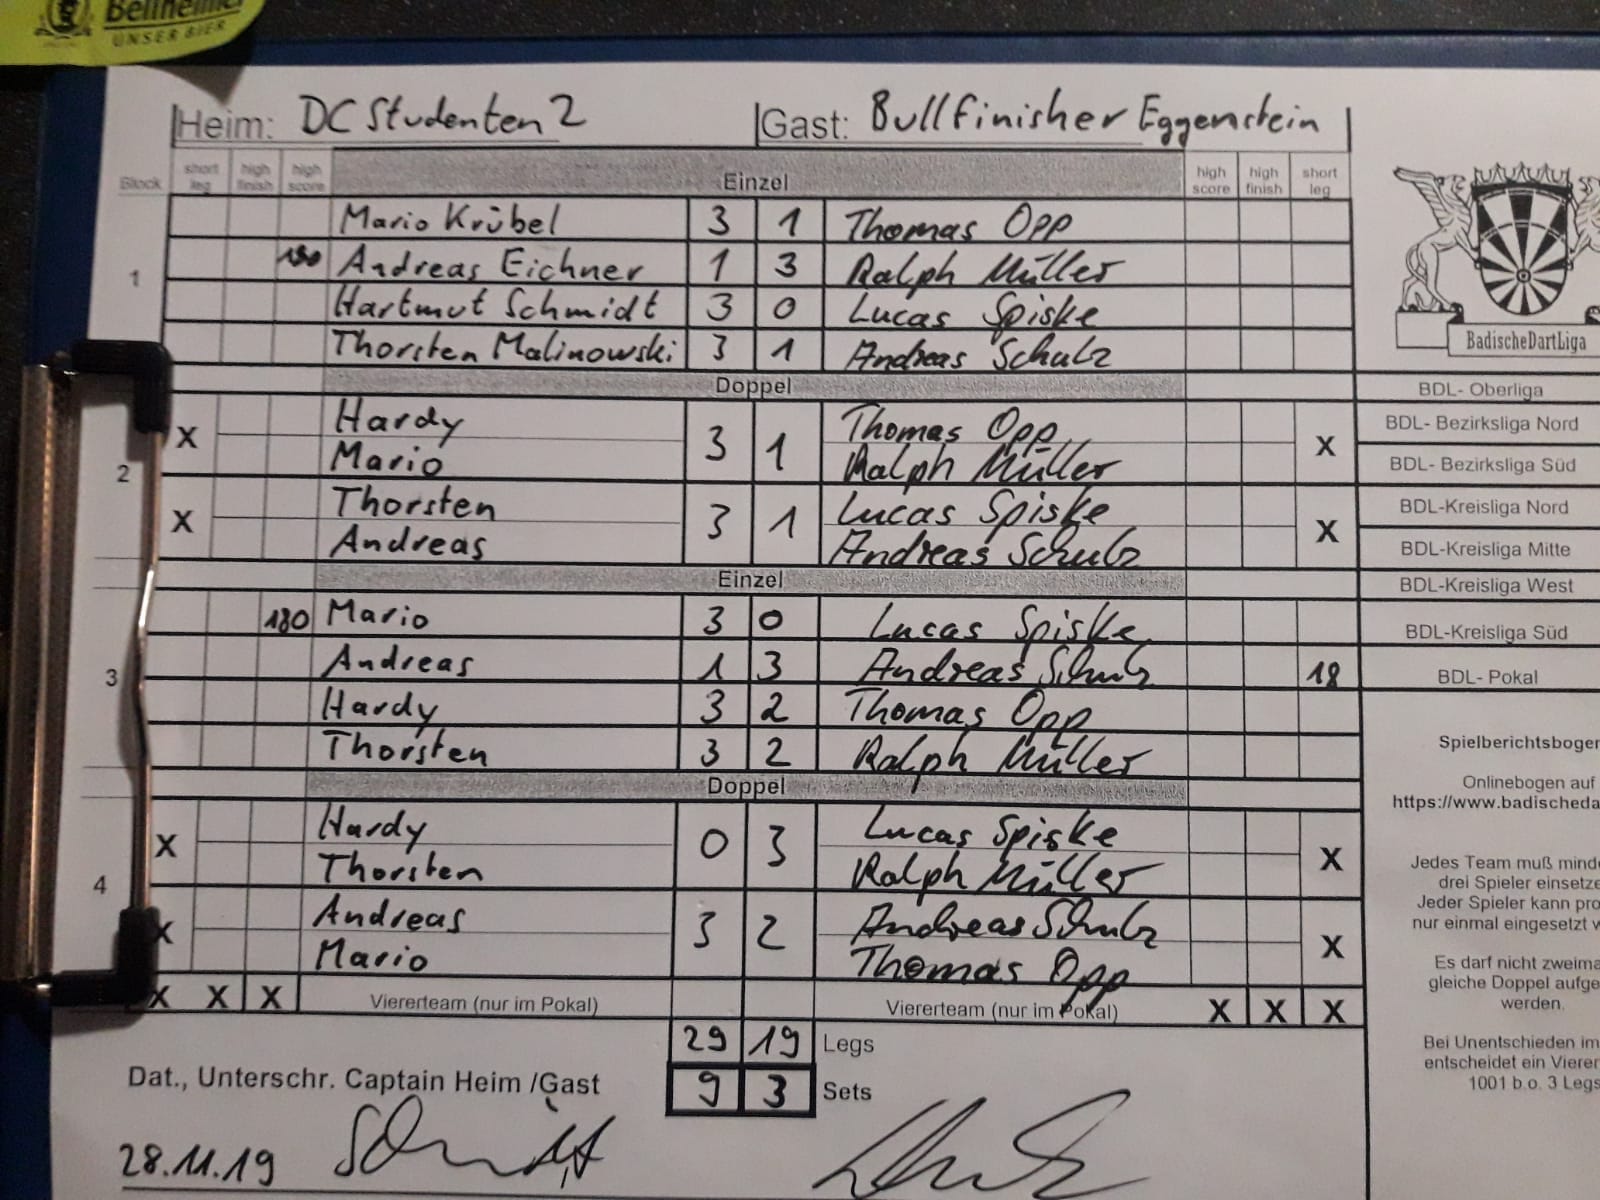 Bellheimer
UNSER BIER
Heim: DC Studenten 2 Gast: Bullfinisher Eggenstein
Block short leg high finish high score Einzel high score high finish short leg
1
Mario Krübel 3 1 Thomas Opp
180 Andreas Eichner 1 3 Ralph Müller
Hartmut Schmidt 3 0 Lucas Spiske
Thorsten Malinowski 3 1 Andreas Schulz
Doppel
2
X Hardy 3 1 Thomas Opp X
Mario Ralph Müller
X Thorsten 3 1 Lucas Spiske X
Andreas Andreas Schulz
Einzel
3
180 Mario 3 0 Lucas Spiske
Andreas 1 3 Andreas Schulz 18
Hardy 3 2 Thomas Opp
Thorsten 3 2 Ralph Müller
Doppel
4
X Hardy 0 3 Lucas Spiske X
Thorsten Ralph Müller
X Andreas 3 2 Andreas Schulz X
Mario Thomas Opp
X X X Viererteam (nur im Pokal) Viererteam (nur im Pokal) X X X
29 19 Legs
9 3 Sets
Dat., Unterschr. Captain Heim /Gast
28.11.19
BadischeDartLiga
BDL- Oberliga
BDL- Bezirksliga Nord
BDL- Bezirksliga Süd
BDL-Kreisliga Nord
BDL-Kreisliga Mitte
BDL-Kreisliga West
BDL-Kreisliga Süd
BDL- Pokal
Spielberichtsbogen
Onlinebogen auf
https://www.badischeda
Jedes Team muß mind
drei Spieler einsetze
Jeder Spieler kann pro
nur einmal eingesetzt w
Es darf nicht zweima
gleiche Doppel aufge
werden.
Bei Unentschieden im
entscheidet ein Vierer
1001 b.o. 3 Legs